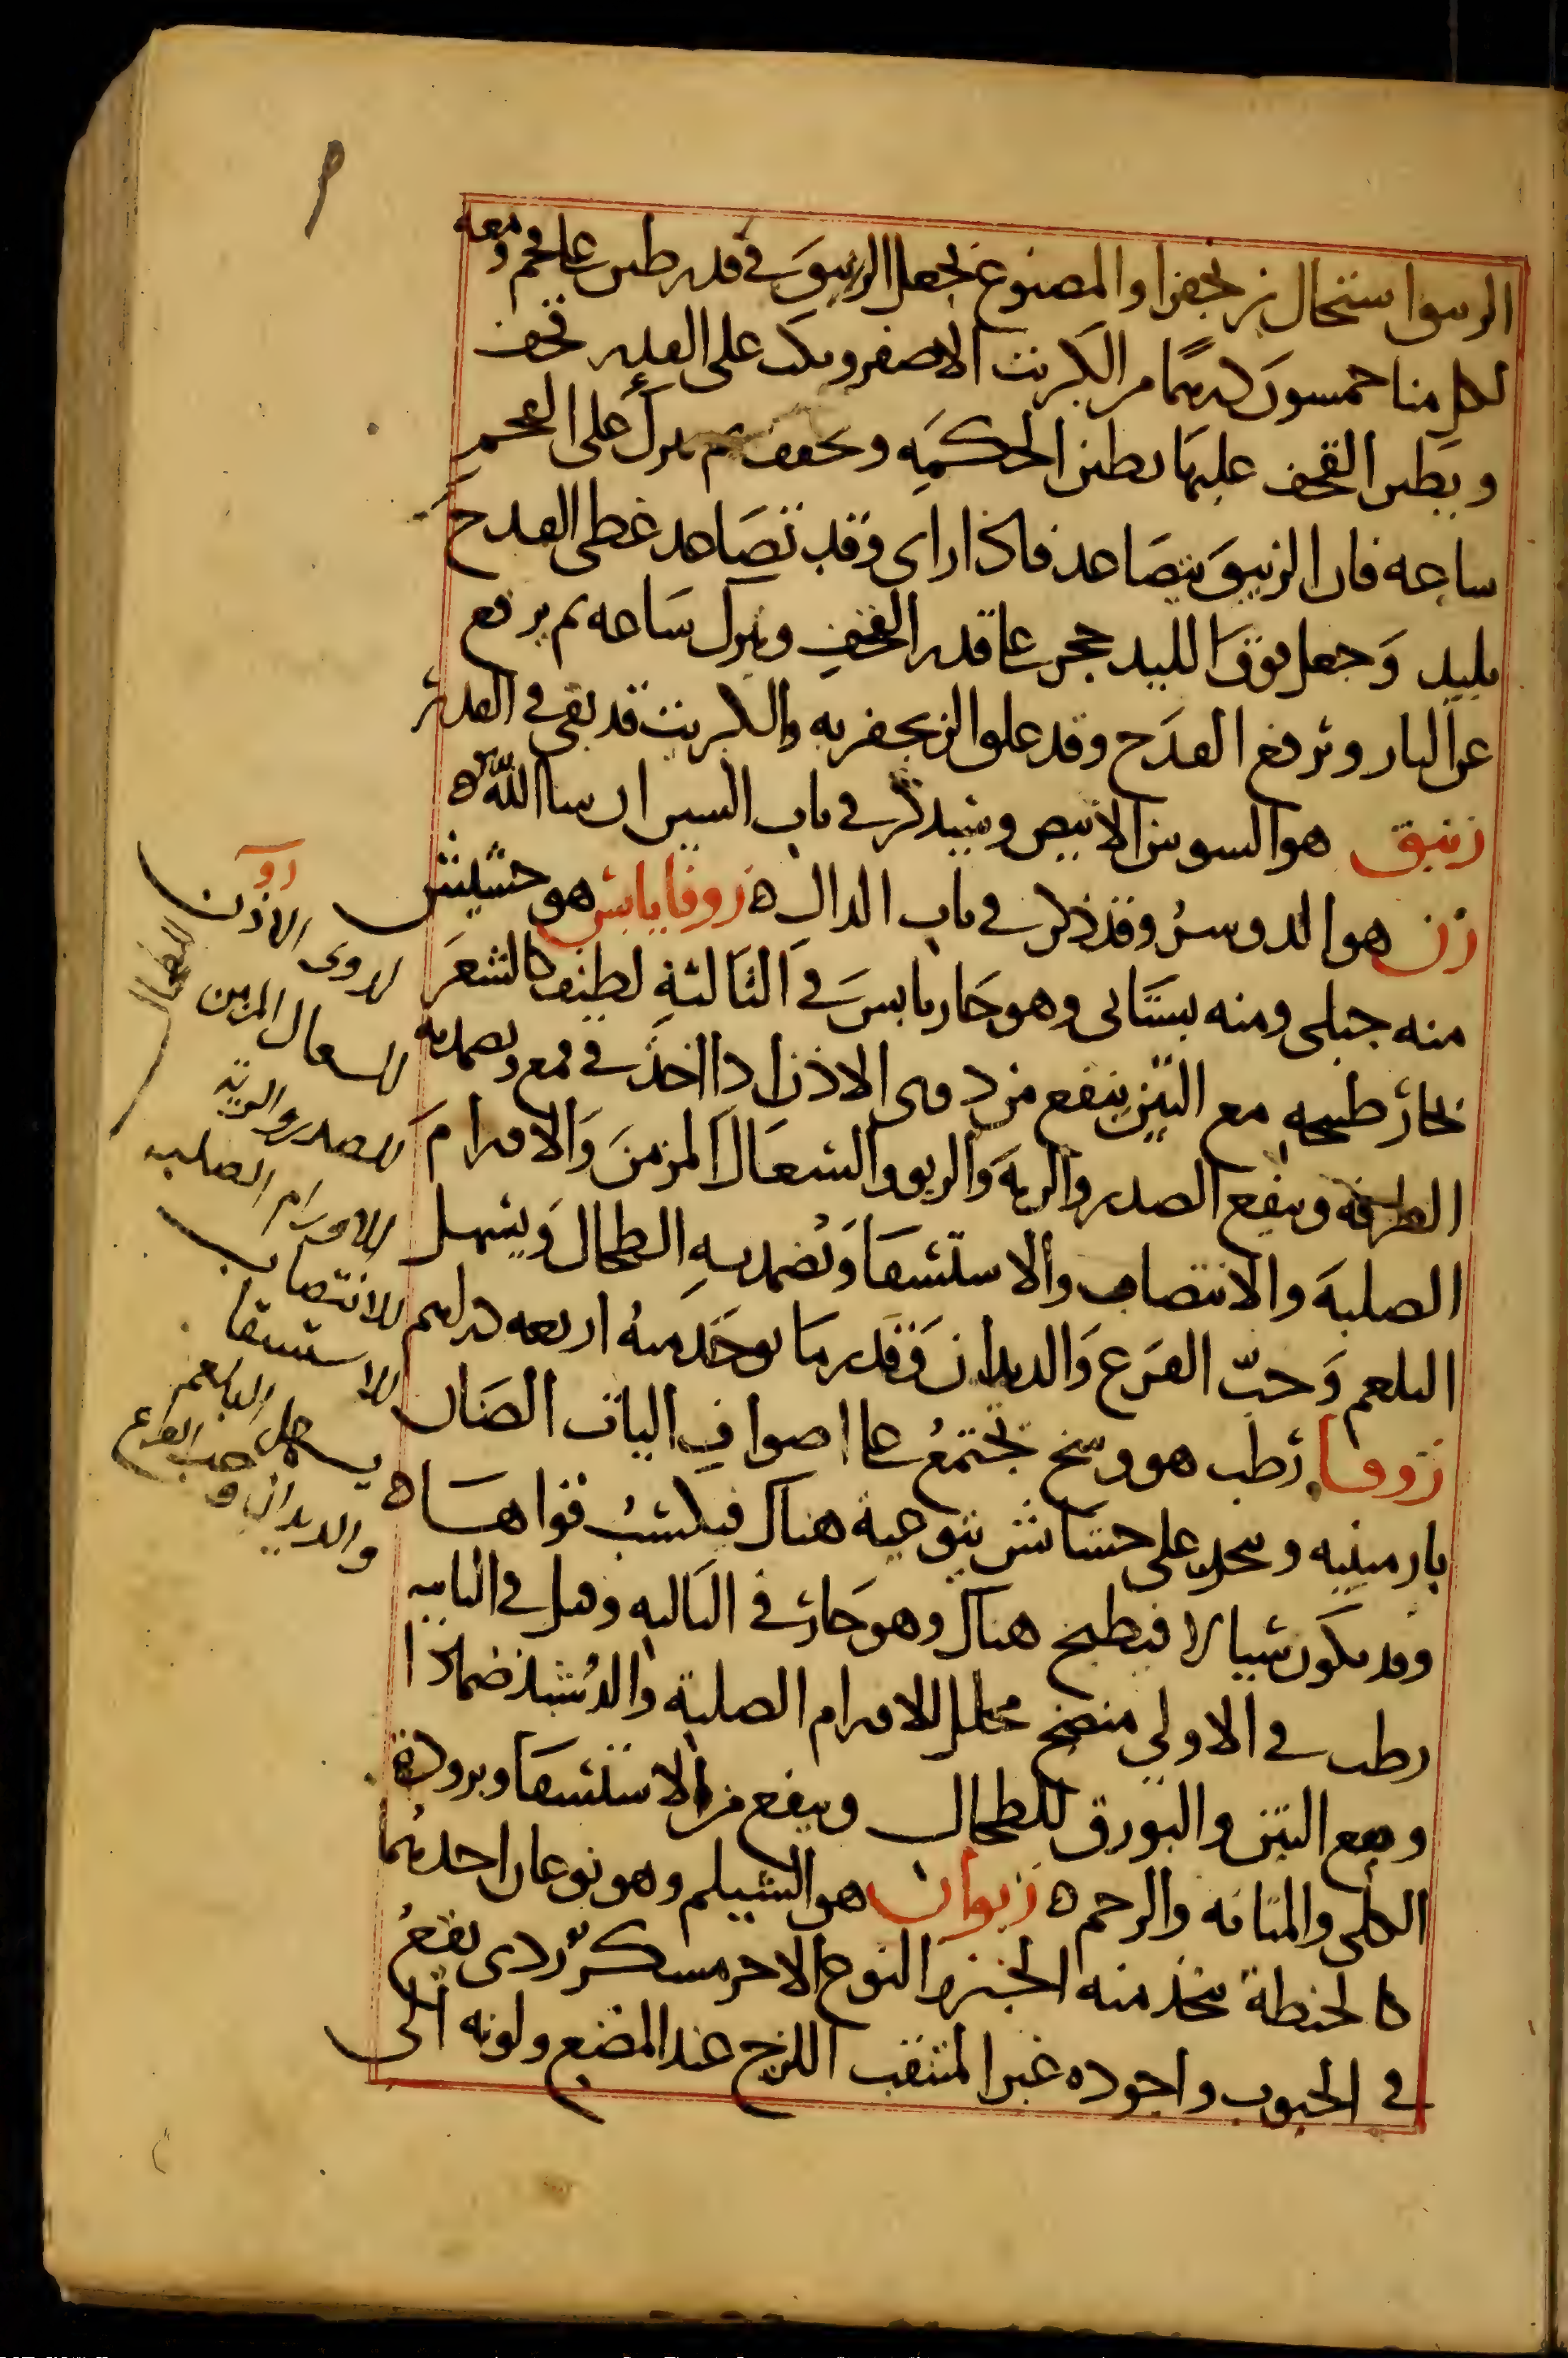 استحال زنجفرا والمصنوع يجعل الزيبق في قدر طين على فحم ومعه
لكل منا خمسون درهما من الكبريت الاصفر ويكب على القدر قحف
ويطين القحف عليها بطين الحكمه ويجفف ثم يترك على الفحم
ساعه فان الزيبق يتصاعد فاذا راى وقد تصاعد غطى القدح
بلبد وجعل فوق اللبد حجر على قدر القحف ويترك ساعه ثم يرفع
عن النار ويرفع القدح وقد علو الزنجفر به والكبريت قد بقى في القدر
زنبق هو السوسن الابيض وسيذكر في باب السين ان شا الله ه
زن هو الدوسر وقد ذكر في باب الدال ه زوفا يابس هو حشيش
منه جبلى ومنه بستانى وهو حار يابس في الثالثة لطيف كالشعر
بخار طبيخه مع التين ينفع من دوى الاذن اذا اخذ في قمع ويضمد به
الطرفه وينفع الصدر والريه والربو والسعال المزمن والاورام
الصلبة والانتصاب والاستسقا ويضمد به الطحال ويسهل
البلغم وحب القرع والديدان وقدر ما يوخذ منه اربعه دراهم
زوفا رطب هو وسخ يجتمع على اصواف اليات الضان
بارمينيه وينجلد على حشائش يتوعية هناك فيكتسب قواها ه
وقد يكون سيالا فيطبخ هناك وهو حار في الثالثه وقيل في الثانيه
رطب في الاولى منضج محلل للاورام الصلبة والدشبذ ضمادا
ومع التين والبورق للطحال وينفع من الاستسقا وبرودة
الكلى والمثانه والرحم ه زيوان هو الشيلم وهو نوعان احدهما
كالحنطة يتخذ منه الخبز والنوع الاخر مسكر ردى يقع
في الحبوب واجوده غير المتثقب اللزج عند المضغ ولونه الى
زو
لدوى الاذن
للطحال
للسعال المزمن
للصدر والرية
للاورام الصلبه
للانتصاب
للاستسقا
يسهل البلغم
والديدان وحب القرع